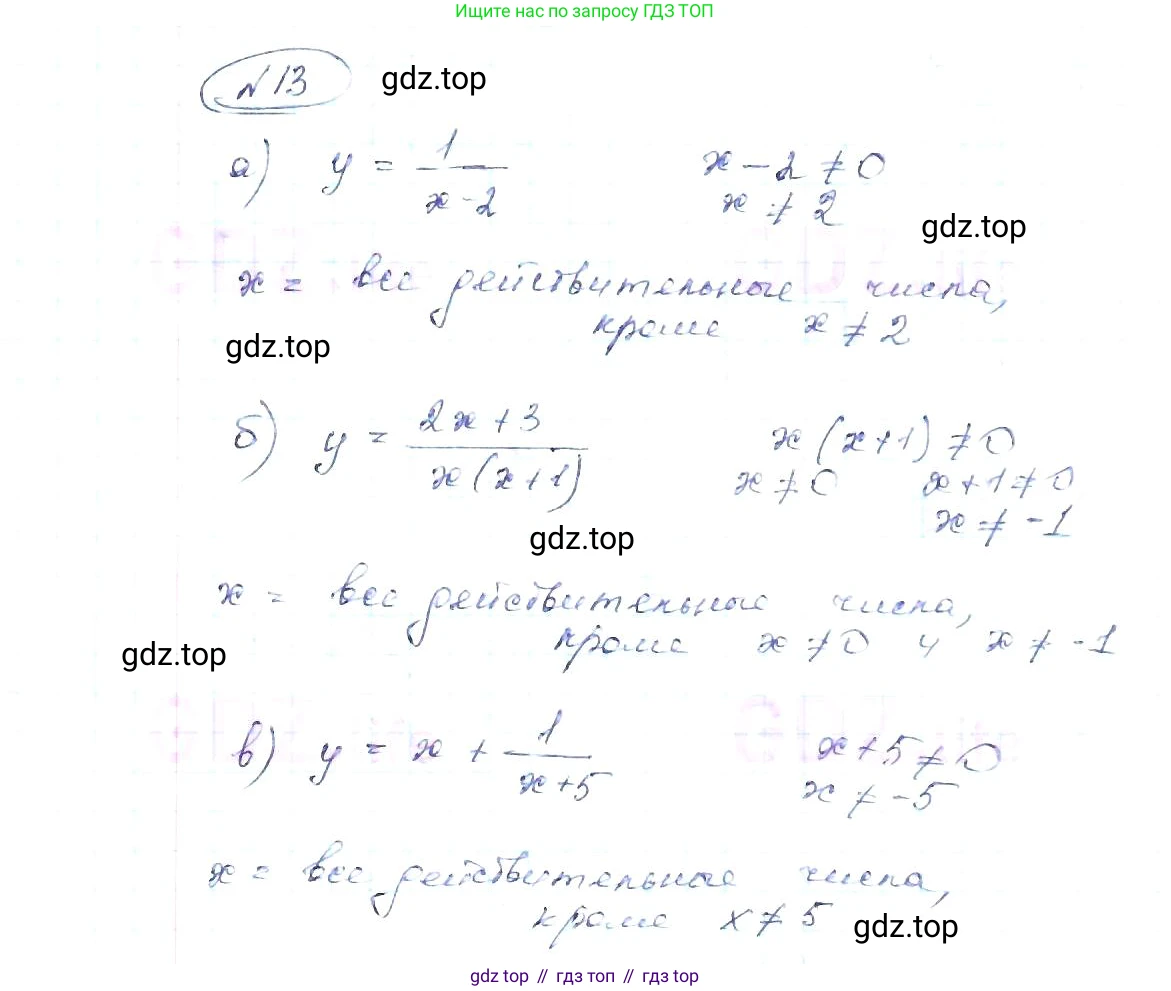 Ищите нас по запросу ГДЗ ТОП
№13 gdz.top
а) y = 1/(x-2) x - 2 ≠ 0
x ≠ 2
gdz.top
x = все действительные числа,
кроме x ≠ 2
gdz.top
б) y = (2x+3)/(x(x+1)) x(x+1) ≠ 0
x ≠ 0 x+1 ≠ 0
x ≠ -1
gdz.top
x = все действительные числа,
кроме x ≠ 0 и x ≠ -1
gdz.top
в) y = x + 1/(x+5) x+5 ≠ 0
x ≠ -5
x = все действительные числа,
кроме x ≠ 5
gdz.top
gdz top // гдз топ // гдз top